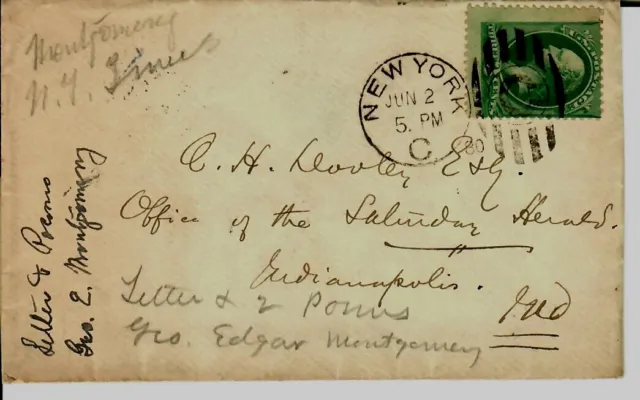 Montgomery
N.Y. Times
NEW YORK
JUN 2
5. PM
80
C
A. H. Dooley Esq.
Office of the Saturday Herald.
Indianapolis.
Ind
Letter & 2 Poems
Geo. Edgar Montgomery
Letter & Poems
Geo. E. Montgomery